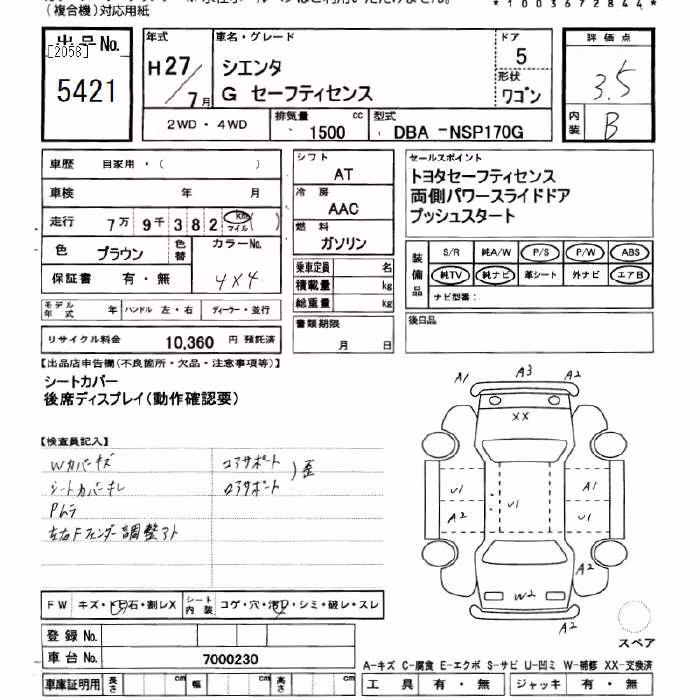 （複合機）対応用紙
*1003672844*
出品No.
[2058]
5421
年式
H27/7月
車名・グレード
シエンタ
G セーフティセンス
ドア
5
形状
ワゴン
評価点
3.5
内装
B
2WD・4WD
排気量 1500 cc
型式 DBA-NSP170G
車歴 自家用・（ ）
車検 年 月
走行 7万 9千 3 8 2 km マイル ( )
色 ブラウン 色替 カラーNo.
4X4
保証書 有・無
モデル年式 年 ハンドル 左・右 ディーラー・並行
リサイクル料金 10,360 円 預託済
シフト
AT
冷房
AAC
燃料
ガソリン
乗車定員 名
積載量 kg
総重量 kg
書類期限
月 日
セールスポイント
トヨタセーフティセンス
両側パワースライドドア
プッシュスタート
装備品
S/R 純A/W P/S P/W ABS
純TV 純ナビ 革シート 外ナビ エアB
ナビ型番：
後日品
【出品店申告欄（不良箇所・欠品・注意事項等）】
シートカバー
後席ディスプレイ（動作確認要）
【検査員記入】
Wカバーキズ
シートカバーキレ
Pムラ
左右Fフェンダー調整アト
コアサポート
ロアサポート
)歪
A1 A3 A2
XX
U1 U1 A1
A2 A2
A2
W2
A2
スペア
FW キズ・トビ石・割レX
シート内装 コゲ・穴・汚レ・シミ・破レ・スレ
登録No.
車台No. 7000230
車庫証明用 長さ cm 幅 cm 高さ cm
A-キズ C-腐食 E-エクボ S-サビ U-凹ミ W-補修 XX-交換済
工具 有・無 ジャッキ 有・無